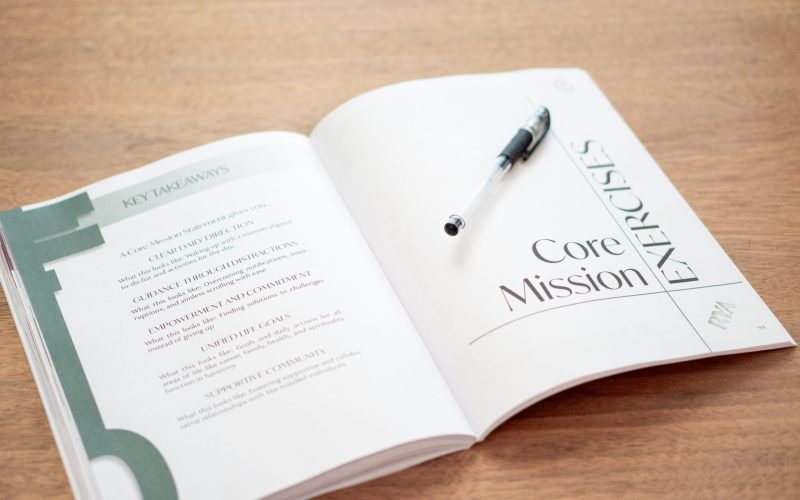 KEY TAKEAWAYS
A Core Mission Statement gives you...
CLEAR DAILY DIRECTION
What this looks like: Waking up with a mission-aligned
to-do-list and activities for the day.
GUIDANCE THROUGH DISTRACTIONS
What this looks like: Overcoming notifications, inter-
ruptions, and aimless scrolling with ease
EMPOWERMENT AND COMMITMENT
What this looks like: Finding solutions to challenges
instead of giving up
UNIFIED LIFE GOALS
What this looks like: Goals and daily actions for all
areas of life like career, family, health, and spirituality
function in harmony
SUPPORTIVE COMMUNITY
What this looks like: Fostering supportive and collabo-
rative relationships with like-minded individuals
Core
Mission
EXERCISES